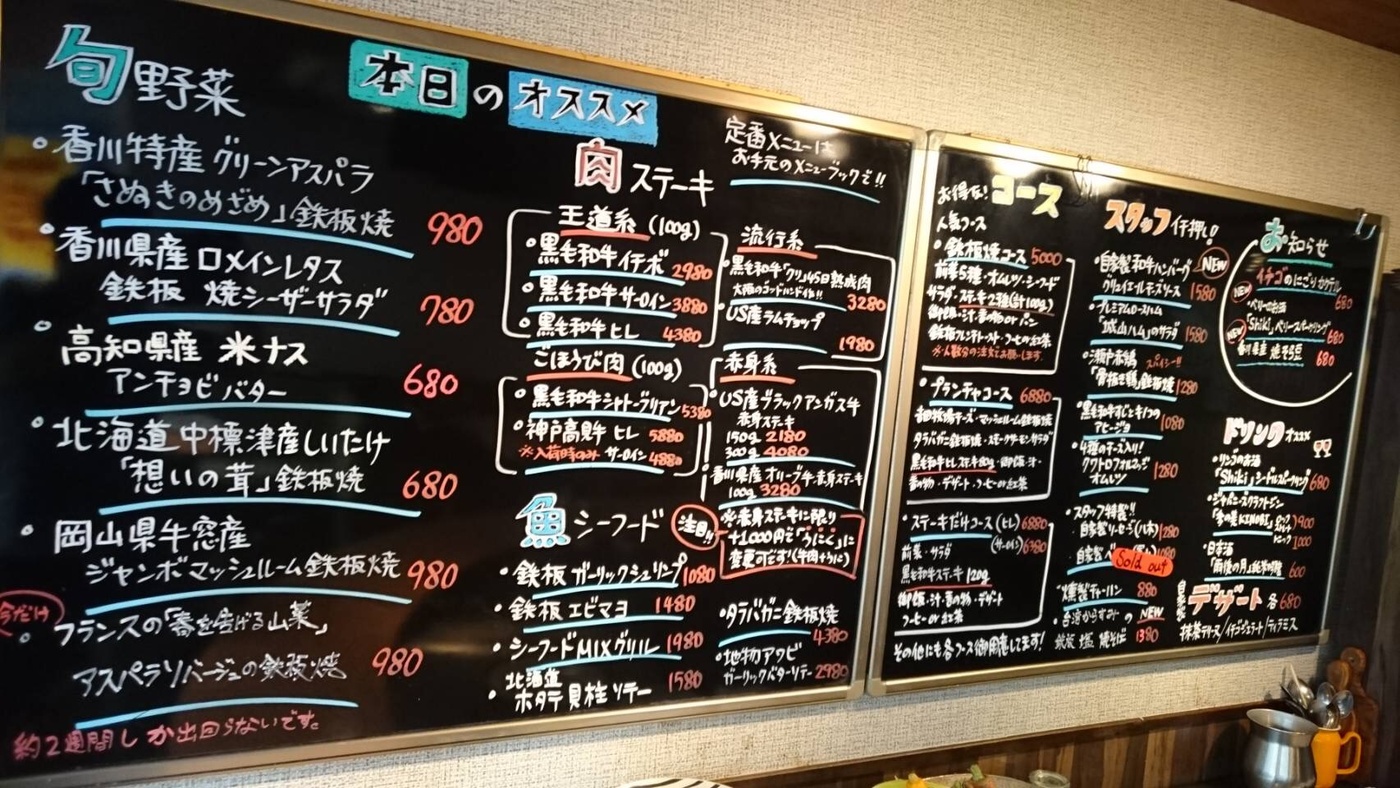 本日のオススメ
旬野菜
・香川特産 グリーンアスパラ
「さぬきのめざめ」鉄板焼 980
・香川県産 ロメインレタス
鉄板 焼シーザーサラダ 780
・高知県産 米ナス
アンチョビバター 680
・北海道中標津産しいたけ
「想いの茸」鉄板焼 680
・岡山県牛窓産
ジャンボマッシュルーム鉄板焼 980
今だけ
・フランスの「春を告げる山菜」
アスペラソバージュの鉄板焼 980
約2週間しか出回らないです。
肉 ステーキ
王道系 (100g)
・黒毛和牛イチボ 2980
・黒毛和牛サーロイン 3880
・黒毛和牛ヒレ 4380
ごほうび肉 (100g)
・黒毛和牛シャトーブリアン 5380
・神戸高見牛 ヒレ 5880
※入荷時のみ サーロイン 4880
魚 シーフード
・鉄板 ガーリックシュリンプ 1080
・鉄板 エビマヨ 1480
・シーフードMIXグリル 1980
・北海道
ホタテ貝柱ソテー 1580
定番メニューは
お手元のメニューブックで!!
流行系
・黒毛和牛「クリ」45日熟成肉
大阪のゴッドハンド作!! 3280
・US産ラムチョップ
1980
赤身系
・US産ブラックアンガス牛
赤身ステーキ
150g 2180
300g 4080
・香川県産オリーブ牛赤身ステーキ
100g 3280
注目!!
※赤身ステーキに限り
+1000円で「うにく」に
変更可です!(牛肉+うに)
・タラバガニ鉄板焼
4380
・地物アワビ
ガーリックバターソテー 2980
お得な! コース
人気コース
・鉄板焼コース 5000
前菜5種・オムレツ・シーフード
サラダ・ステーキ2種(計100g)
御飯・汁・香の物 or パン
鉄板フレンチトースト・コーヒー or 紅茶
※人数分の注文でお願いします。
・プランチャコース 6880
タラバガニ鉄板焼・スモークサーモンサラダ
黒毛和牛ヒレステーキ80g・御飯・汁・
香の物・デザート・コーヒー or 紅茶
・ステーキだけコース (ヒレ) 6880
(サーロイン) 6380
前菜・サラダ
黒毛和牛ステーキ 120g
御飯・汁・香の物・デザート
コーヒー or 紅茶
その他にも各コース御用意してます!
スタッフイチ押し!
・自家製和牛ハンバーグ NEW
グリュイエールチーズソース 1580
・プレミアムロースハム
「城山ハム」のサラダ 1580
・瀬戸赤鶏 スパイシー!!
「骨抜き鶏」鉄板焼 1280
・黒毛和牛すじとキノコの
アヒージョ 1080
・4種のチーズ入り!
クワトロフォルマッジ
オムレツ 1280
・スタッフ特製!!
自家製ソーセージ(八本) 1280
Sold out
・燻製チャーハン 880
・台湾からすみの NEW
鉄板 塩 焼そば 1380
お知らせ
イチゴのにごりカクテル
NEW 680
・ベリーのお酒
「Shiki」ベリースパークリング
NEW 680
680
ドリンク オススメ
・リンゴのお酒
「Shiki」シードルスパークリング 680
・ジャパニーズクラフトジン
「季の美 KINOBI」 ロック 900
トニック 1000
・日本酒
「雨後の月」純米吟醸 600
自家製 デザート 各680
抹茶アイス/イチゴジェラート/ティラミス